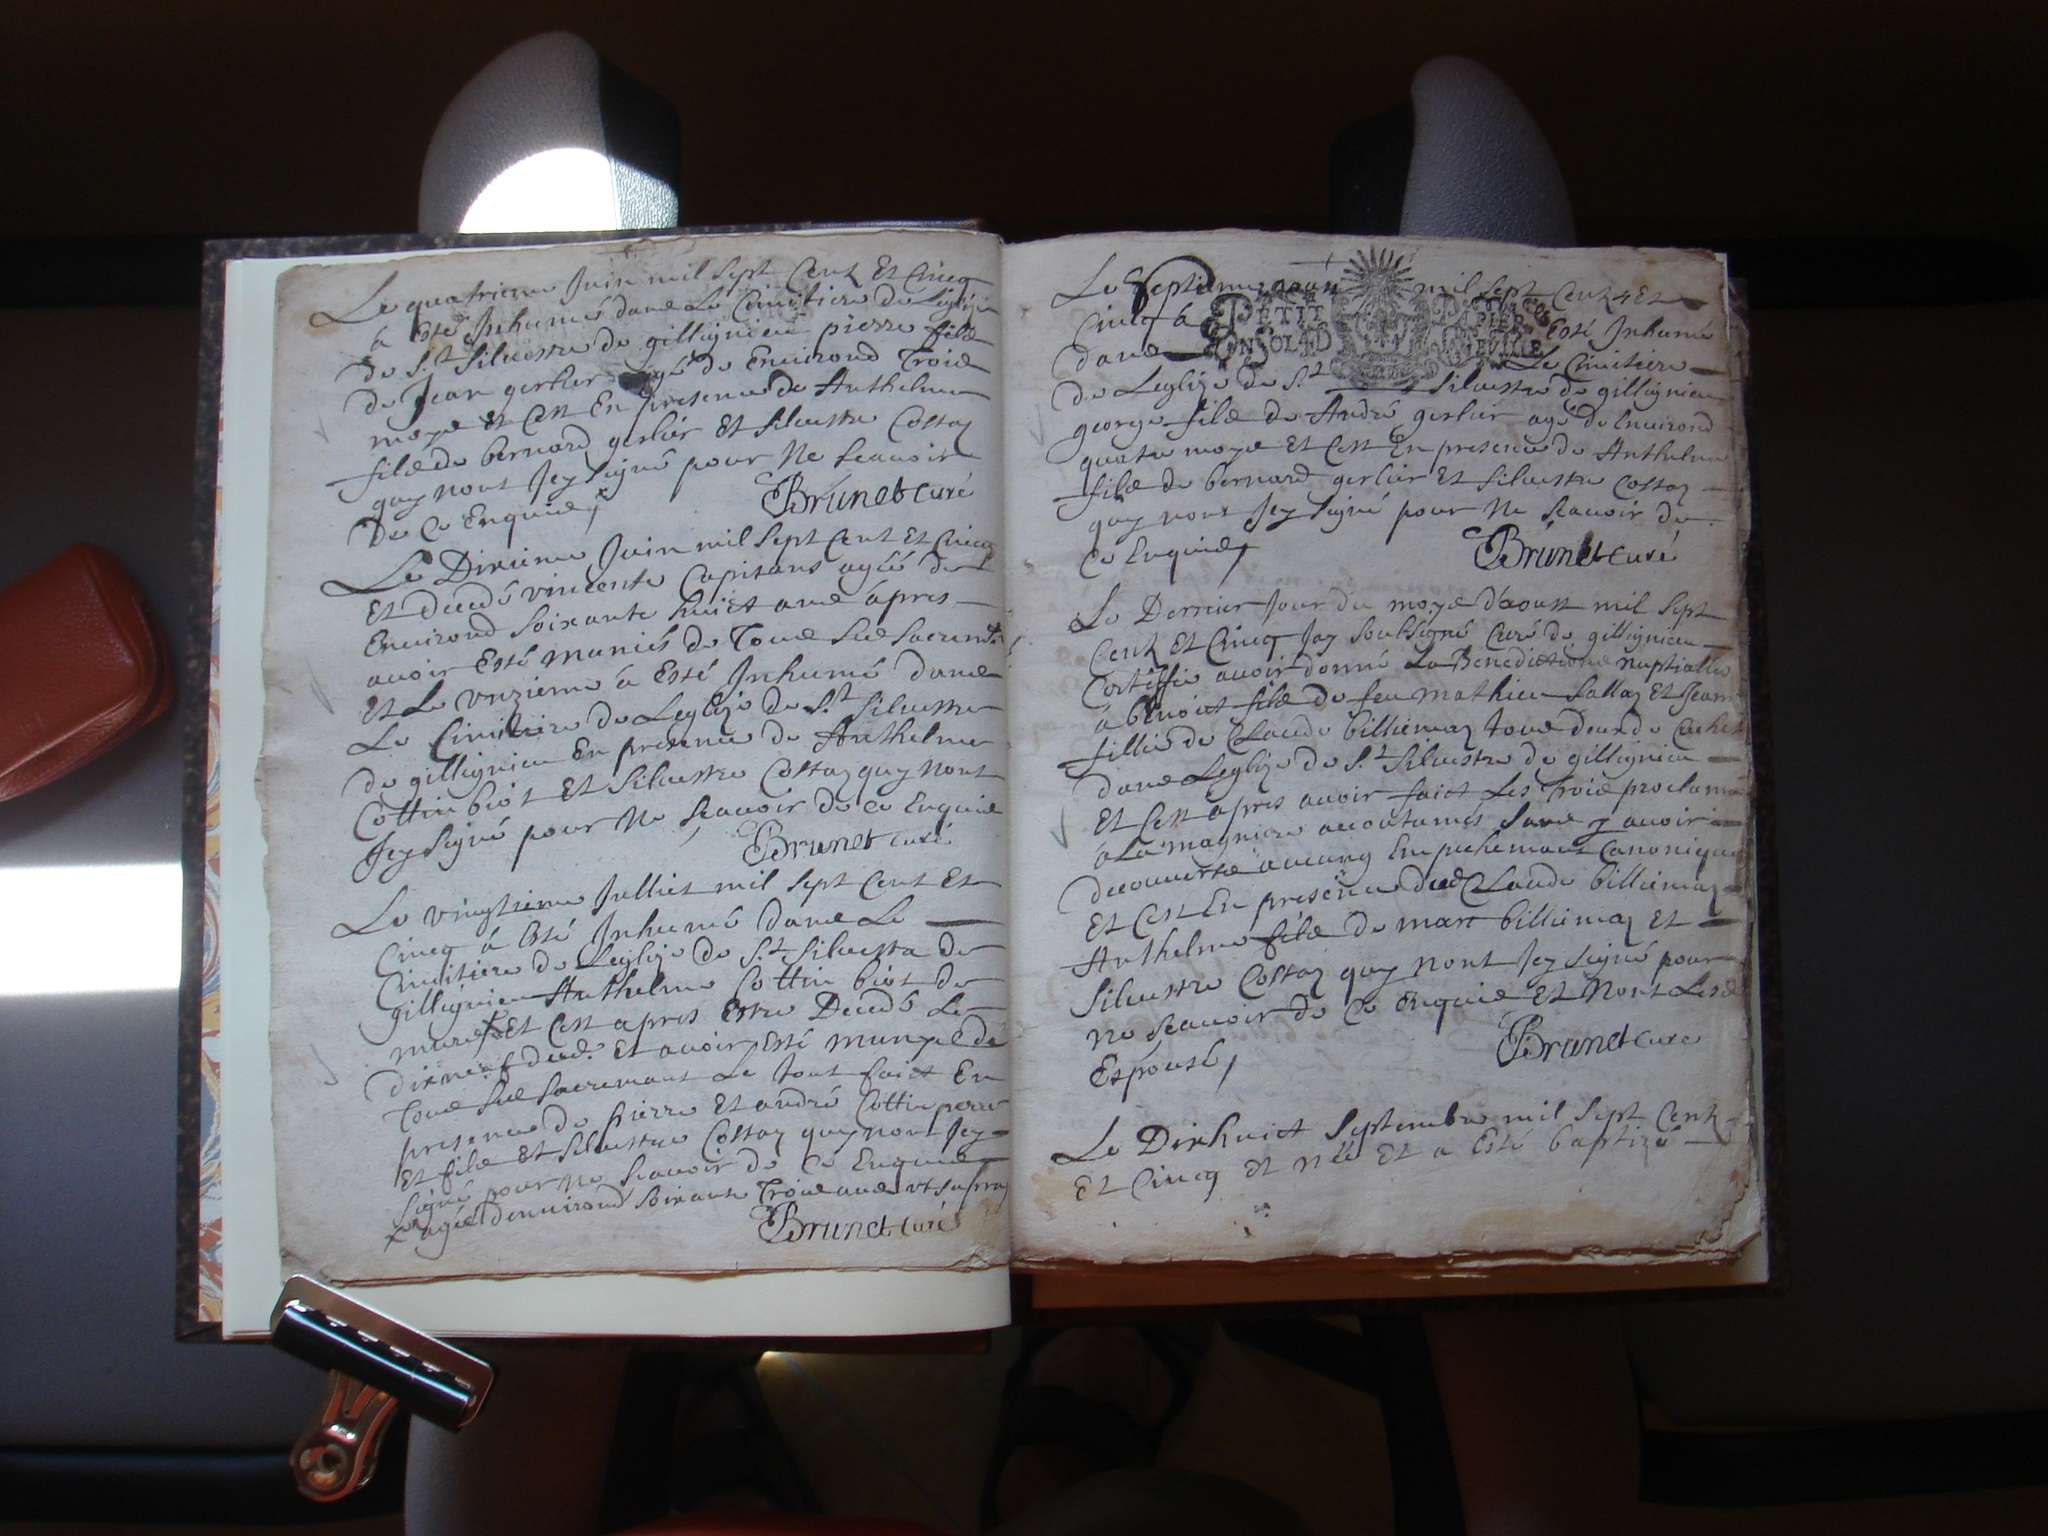 Le quatrieme Juin mil sept Cent Et Cincq
à Esté Inhumé dans Le Cimitiere de Leglize
de S.t Siluestre de gillignieu pierre fils
de Jean gerlier agé de Enuirond Trois
moys Et Cest En presence de Anthelme
fils de bernard gerlier Et Siluestre Costaz
quy nont Jey signé pour Ne sçauoir
De Ce Enquis
Brunet curé
Le Dixieme Juin mil sept Cent Et Cincq
Et decedé vincente Capitans agéé de
Enuirond soixante huict ans apres
auoir Esté muniés de Tous ses sacremts
Et Le vnzieme à Esté Inhumé dans
Le Cimitiere de Leglize de S.t Siluestre
de gillignieu En presence de Anthelme
Cottin biot Et Siluestre Costaz quy nont
Jey signé pour Ne sçauoir de ce Enquis
Brunet curé
Le vingtieme Julliet mil sept Cent Et
Cincq à Esté Inhumé dans Le
Cimitiere de Leglize de S.t Siluestre de
gillignieu Anthelme Cottin biot de
mure Et Cest apres Estre Decedé Le
dixneuf dud. Et auoir Esté munys de
Tous ses sacremant Le tout faict En
presence de pierre Et andré Cottin pere
Et fils Et Siluestre Costaz quy nont Jey
signé pour Ne sçauoir de Ce Enquis
x agéé denuirond soixante Trois ans vt supra
Brunet curé
Le Septieme aoust mil sept Cent Et
PETIT PAPIER
Cincq à Esté Inhumé
dans Le Cimitiere
de Leglize de S.t Siluestre de gillignieu
george fils de André gerlier agé de Enuirond
quatre moys Et Cest En presence de Anthelme
fils de bernard gerlier Et Siluestre Costaz
quy nont Jey signé pour Ne sçauoir de
Ce Enquis
Brunet curé
Le Dernier Jour du moys d'aoust mil sept
Cent Et Cincq Jay soubsigné Curé de gillignieu
Certiffie auoir donné La Benedictione nuptialle
à benoict fils de feu mathieu sallaz Et Jeanne
fillie de Claude billiemaz tous deux de
dans Leglize de S.t Siluestre de gillignieu
Et Cest apres auoir faict Les Trois proclama
à La magniere accoutumés sans y auoir
decouverte aucung Empechemant Canonique
Et Cest En presence dud Claude billiemaz
Anthelme fils de marc billiemaz Et
Siluestre Costaz quy nont Jey signé pour
ne sçauoir de Ce Enquis Et Nont Lesd
Espousé
Brunet curé
Le Dixhuict Septembre mil sept Cent
Et Cincq Et néé Et a Esté baptizé